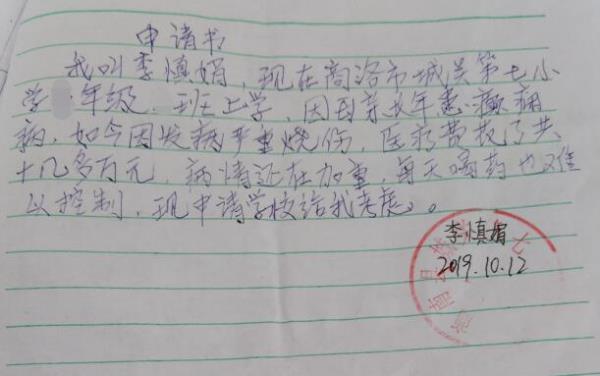 申请书
我叫李慎娟，现在商洛市城关第七小
学 年级 班上学，因母亲长年患癫痫
病，如今因发病严重烧伤，医疗费花了共
十几多万元，病情还在加重，每天喝药也难
以控制，现申请学校给我考虑。
李慎娟
2019.10.12